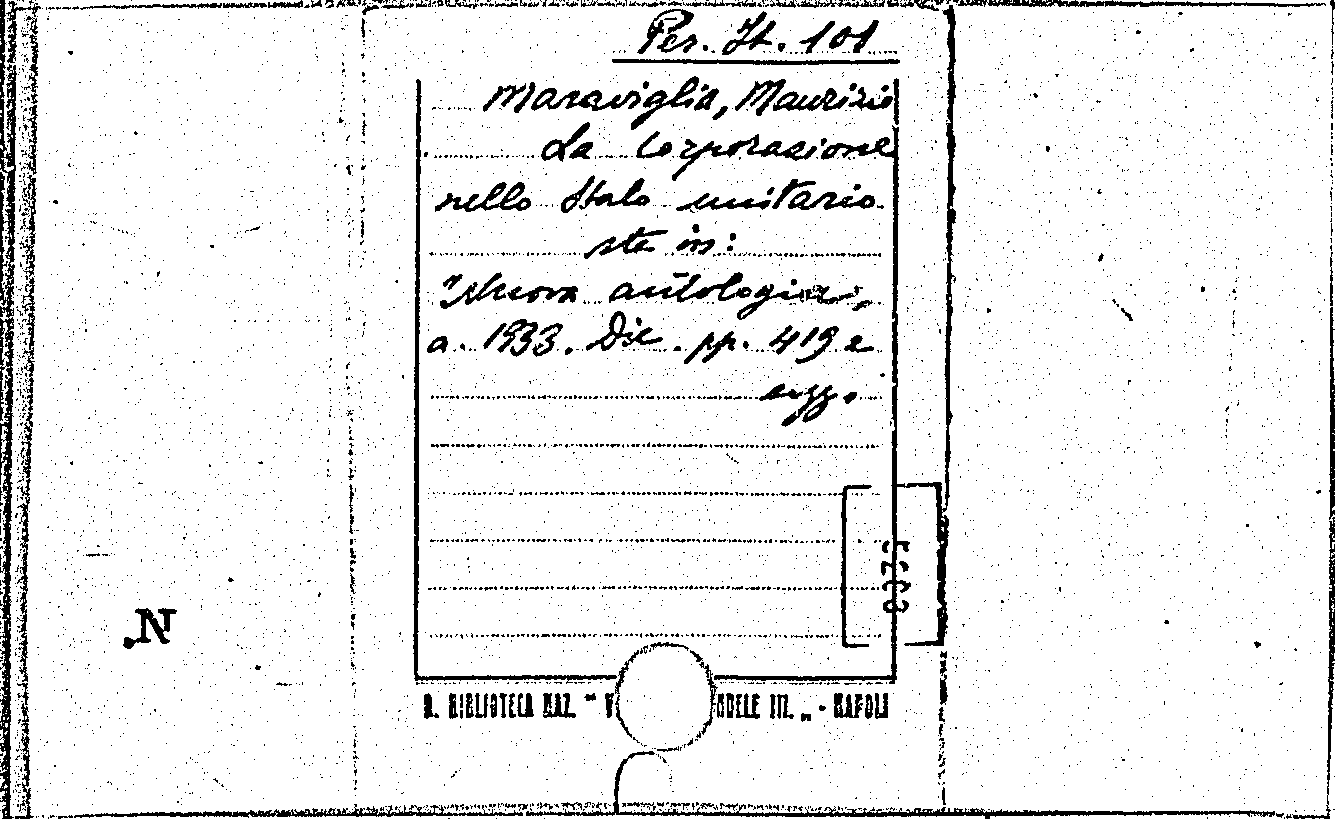 Per. It. 101
Maraviglia, Maurizio
La Corporazione
nello Stato unitario
sta in:
Nuova antologia,
a. 1933. Dic. pp. 419 e
segg.
R. BIBLIOTECA NAZ. " V ANUELE III. „ - NAPOLI
N.